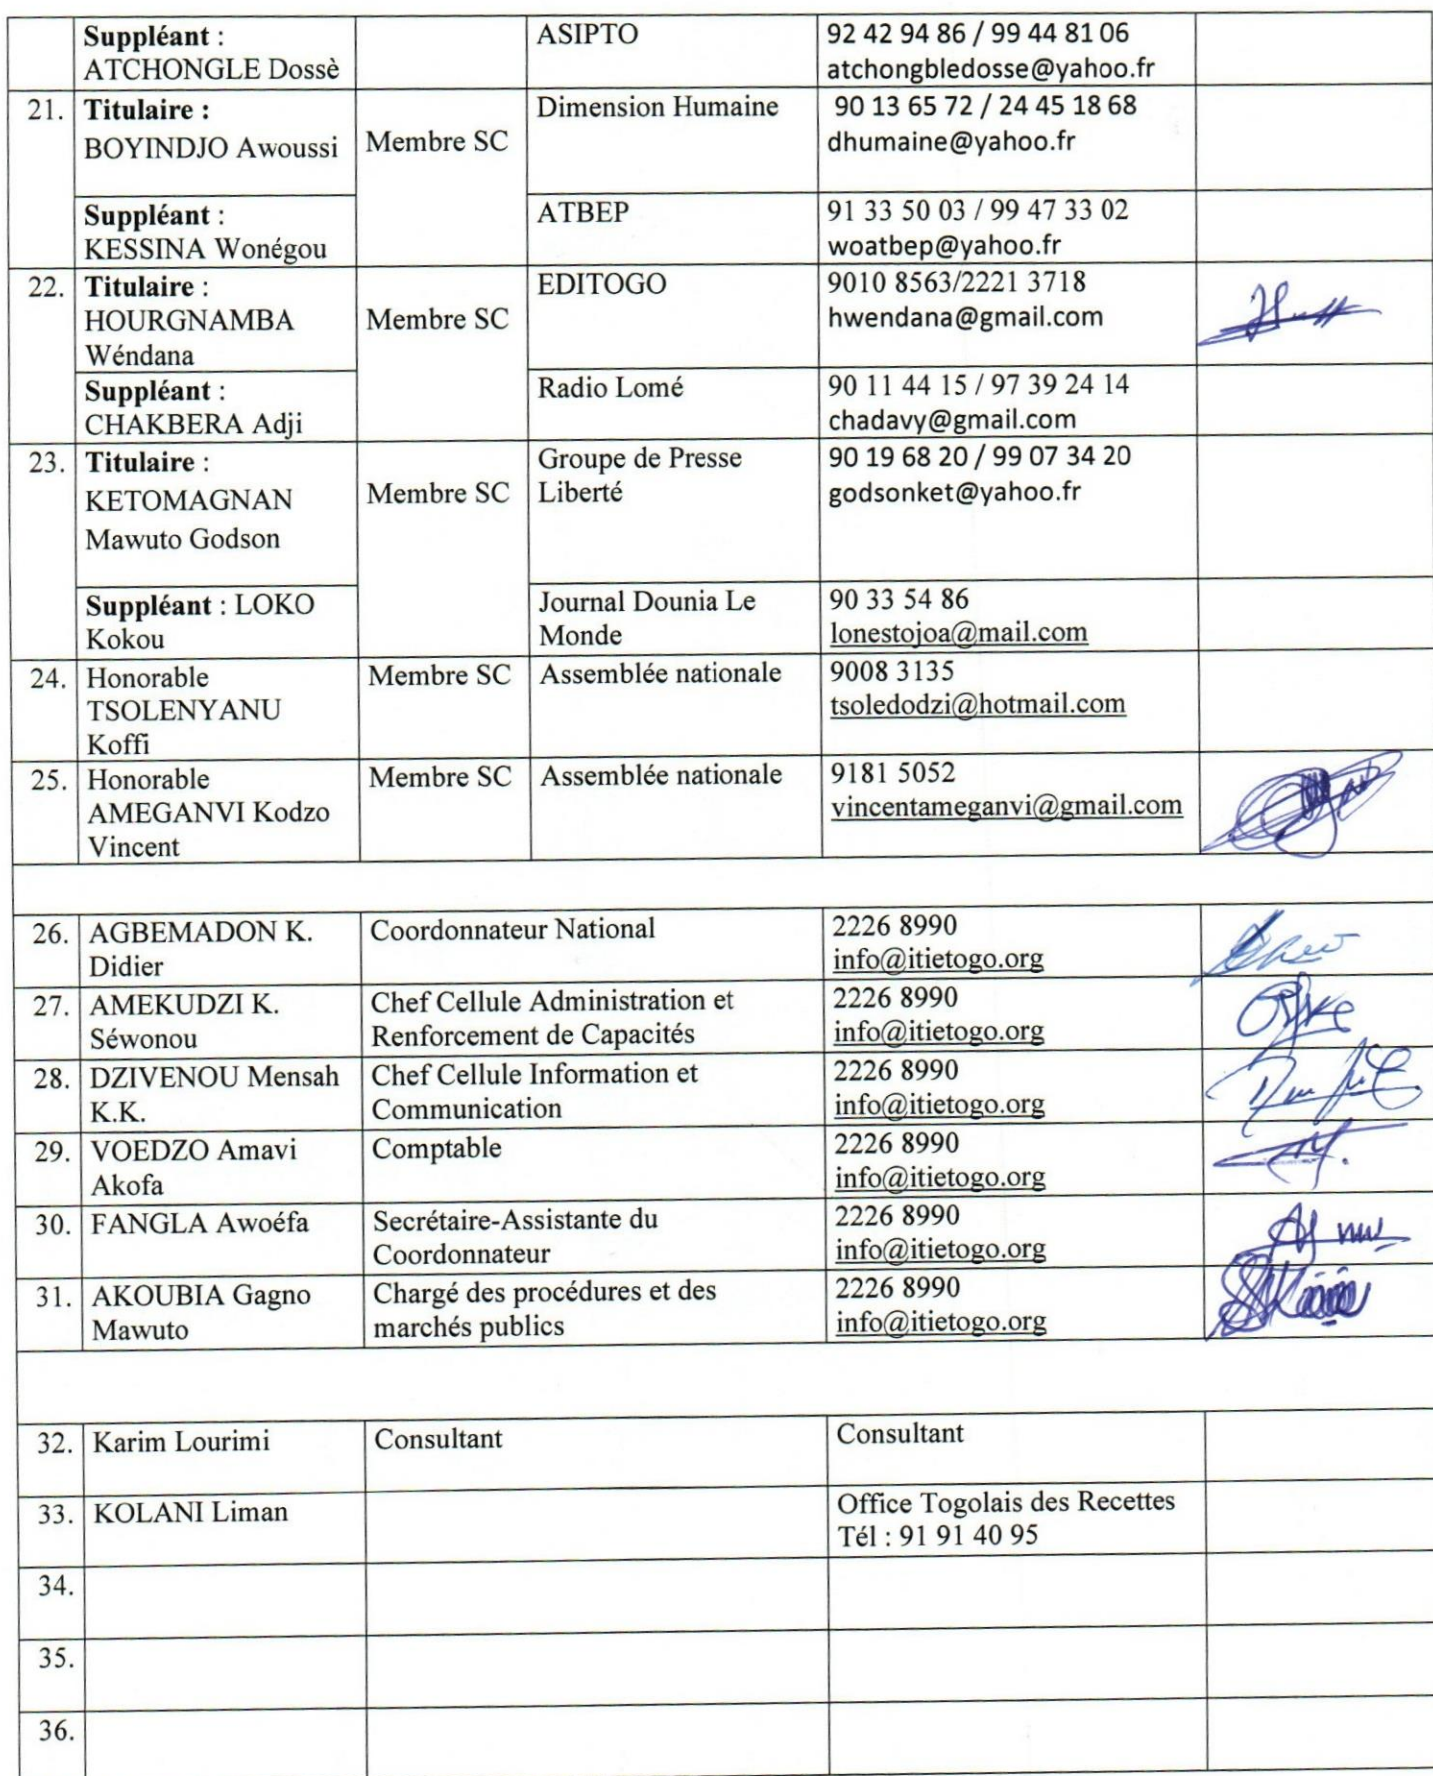 Suppléant :
ATCHONGLE Dossè
ASIPTO
92 42 94 86 / 99 44 81 06
atchongbledosse@yahoo.fr
21.
Titulaire :
BOYINDJO Awoussi
Membre SC
Dimension Humaine
90 13 65 72 / 24 45 18 68
dhumaine@yahoo.fr
Suppléant :
KESSINA Wonégou
ATBEP
91 33 50 03 / 99 47 33 02
woatbep@yahoo.fr
22.
Titulaire :
HOURGNAMBA
Wéndana
Membre SC
EDITOGO
9010 8563/2221 3718
hwendana@gmail.com
Suppléant :
CHAKBERA Adji
Radio Lomé
90 11 44 15 / 97 39 24 14
chadavy@gmail.com
23.
Titulaire :
KETOMAGNAN
Mawuto Godson
Membre SC
Groupe de Presse
Liberté
90 19 68 20 / 99 07 34 20
godsonket@yahoo.fr
Suppléant : LOKO
Kokou
Journal Dounia Le
Monde
90 33 54 86
lonestojoa@mail.com
24.
Honorable
TSOLENYANU
Koffi
Membre SC
Assemblée nationale
9008 3135
tsoledodzi@hotmail.com
25.
Honorable
AMEGANVI Kodzo
Vincent
Membre SC
Assemblée nationale
9181 5052
vincentameganvi@gmail.com
26.
AGBEMADON K.
Didier
Coordonnateur National
2226 8990
info@itietogo.org
27.
AMEKUDZI K.
Séwonou
Chef Cellule Administration et
Renforcement de Capacités
2226 8990
info@itietogo.org
28.
DZIVENOU Mensah
K.K.
Chef Cellule Information et
Communication
2226 8990
info@itietogo.org
29.
VOEDZO Amavi
Akofa
Comptable
2226 8990
info@itietogo.org
30.
FANGLA Awoéfa
Secrétaire-Assistante du
Coordonnateur
2226 8990
info@itietogo.org
31.
AKOUBIA Gagno
Mawuto
Chargé des procédures et des
marchés publics
2226 8990
info@itietogo.org
32.
Karim Lourimi
Consultant
Consultant
33.
KOLANI Liman
Office Togolais des Recettes
Tél : 91 91 40 95
34.
35.
36.